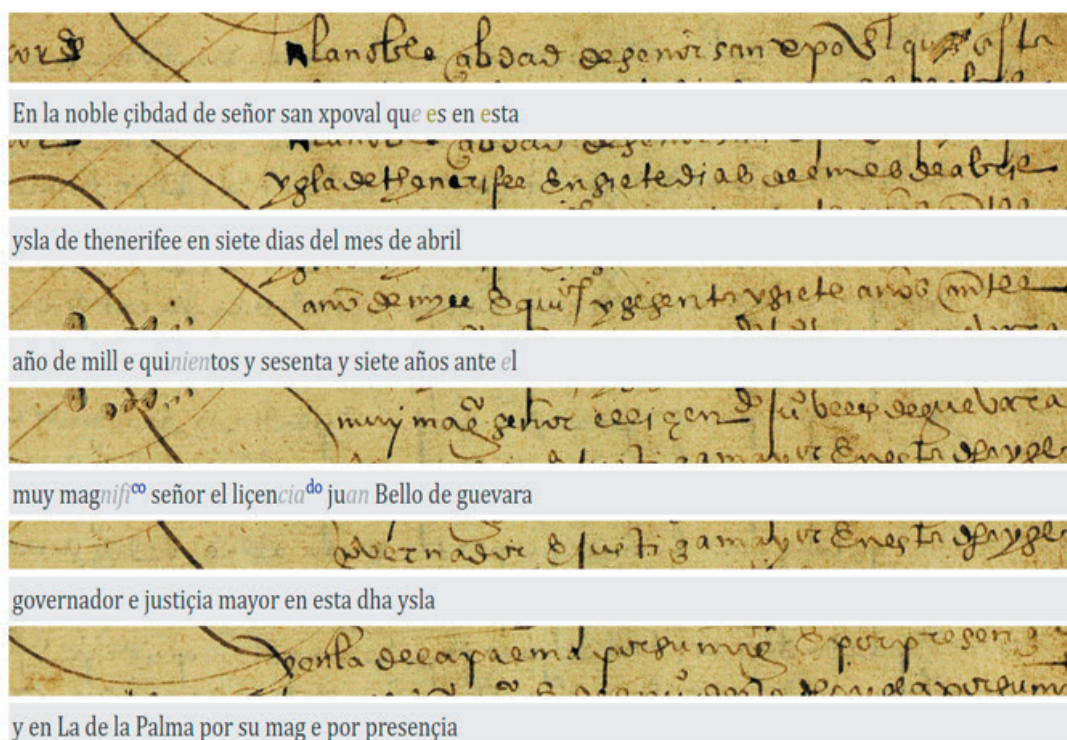 En la noble çibdad de señor san xpoval que es en esta
ysla de thenerifee en siete dias del mes de abril
año de mill e quinientos y sesenta y siete años ante el
muy magnifico señor el liçenciado juan Bello de guevara
governador e justiçia mayor en esta dha ysla
y en La de la Palma por su mag e por presençia